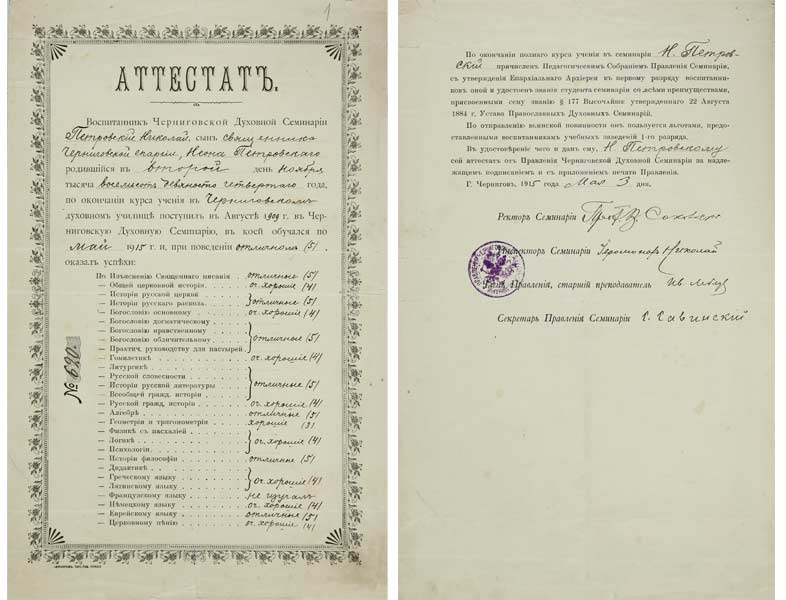 1
АТТЕСТАТЪ.
Воспитанникъ Черниговской Духовной Семинаріи
Петровскій Николай, сынъ священника
Черниговской епархіи, Іасона Петровскаго
родившійся въ второй день ноября
тысяча восемьсотъ девяносто четвертаго года,
по окончаніи курса ученія въ Черниговскомъ
духовномъ училищѣ поступилъ въ Августѣ 1909 г. въ Чер-
ниговскую Духовную Семинарію, въ коей обучался по
май 1915 г. и, при поведеніи отличномъ (5),
оказалъ успѣхи:
По Изъясненію Священнаго писанія отличные (5)
— Общей церковной исторіи оч. хорошіе (4)
— Исторіи русской церкви
— Исторіи русскаго раскола отличные (5)
— Богословію основному оч. хорошіе (4)
— Богословію догматическому
— Богословію нравственному
— Богословію обличительному отличные (5)
— Практич. руководству для пастырей
— Гомилетикѣ оч. хорошіе (4)
— Литургикѣ
— Русской словесности
— Исторіи русской литературы отличные (5)
— Всеобщей гражд. исторіи
— Русской гражд. исторіи оч. хорошіе (4)
— Алгебрѣ отличные (5)
— Геометріи и тригонометріи хорошіе (3)
— Физикѣ съ пасхаліей
— Логикѣ оч. хорошіе (4)
— Психологіи
— Исторіи философіи отличные (5)
— Дидактикѣ
— Греческому языку
— Латинскому языку оч. хорошіе (4)
— Французскому языку не изучалъ
— Нѣмецкому языку оч. хорошіе (4)
— Еврейскому языку отличные (5)
— Церковному пѣнію оч. хорошіе (4)
№ 620.
По окончаніи полнаго курса ученія въ семинаріи Н. Петров-
скій причисленъ Педагогическимъ Собраніемъ Правленія Семинаріи,
съ утвержденія Епархіальнаго Архіерея къ первому разряду воспитанни-
ковъ оной и удостоенъ званія студента семинаріи со всѣми преимуществами,
присвоенными сему званію § 177 Высочайше утвержденнаго 22 Августа
1884 г. Устава Православныхъ Духовныхъ Семинарій.
По отправленію воинской повинности онъ пользуется льготами, предо-
ставленными воспитанникамъ учебныхъ заведеній 1-го разряда.
Въ удостовѣреніе чего и данъ ему, Н. Петровскому
сей аттестатъ отъ Правленія Черниговской Духовной Семинаріи за надле-
жащимъ подписаніемъ и съ приложеніемъ печати Правленія.
Г. Черниговъ, 1915 года Мая 3 дня.
Ректоръ Семинаріи Прот. В.
Инспекторъ Семинаріи Іеромонахъ Николай
Членъ Правленія, старшій преподаватель Ив.
Секретарь Правленія Семинаріи С. Савинскій